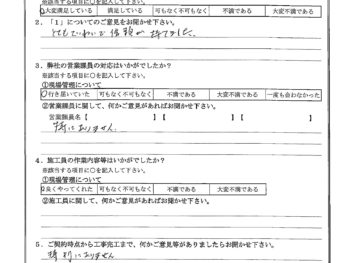 ※該当する項目に○を記入して下さい。
大変満足している 満足している 可もなく不可もなく 不満である 大変不満である
2.「1」についてのご意見をお聞かせ下さい。
とてもていねいで信頼が持てました。
3.弊社の営業課員の対応はいかがでしたか?
※該当する項目に○を記入して下さい。
①現場管理について
行き届いていた 可もなく不可もなく 不満である 大変不満である 一度も会わなかった
②営業課員に関して、何かご意見があればお聞かせ下さい。
営業課員名【 】【 】【 】
特にありません。
4.施工員の作業内容等はいかがでしたか?
※該当する項目に○を記入して下さい。
①現場管理について
良くやってくれた 可もなく不可もなく 不満である 大変不満である
②施工員に関して、何かご意見があればお聞かせ下さい。
5.ご契約時点から工事完工まで、何かご意見等がありましたらお聞かせ下さい。
特別にありません